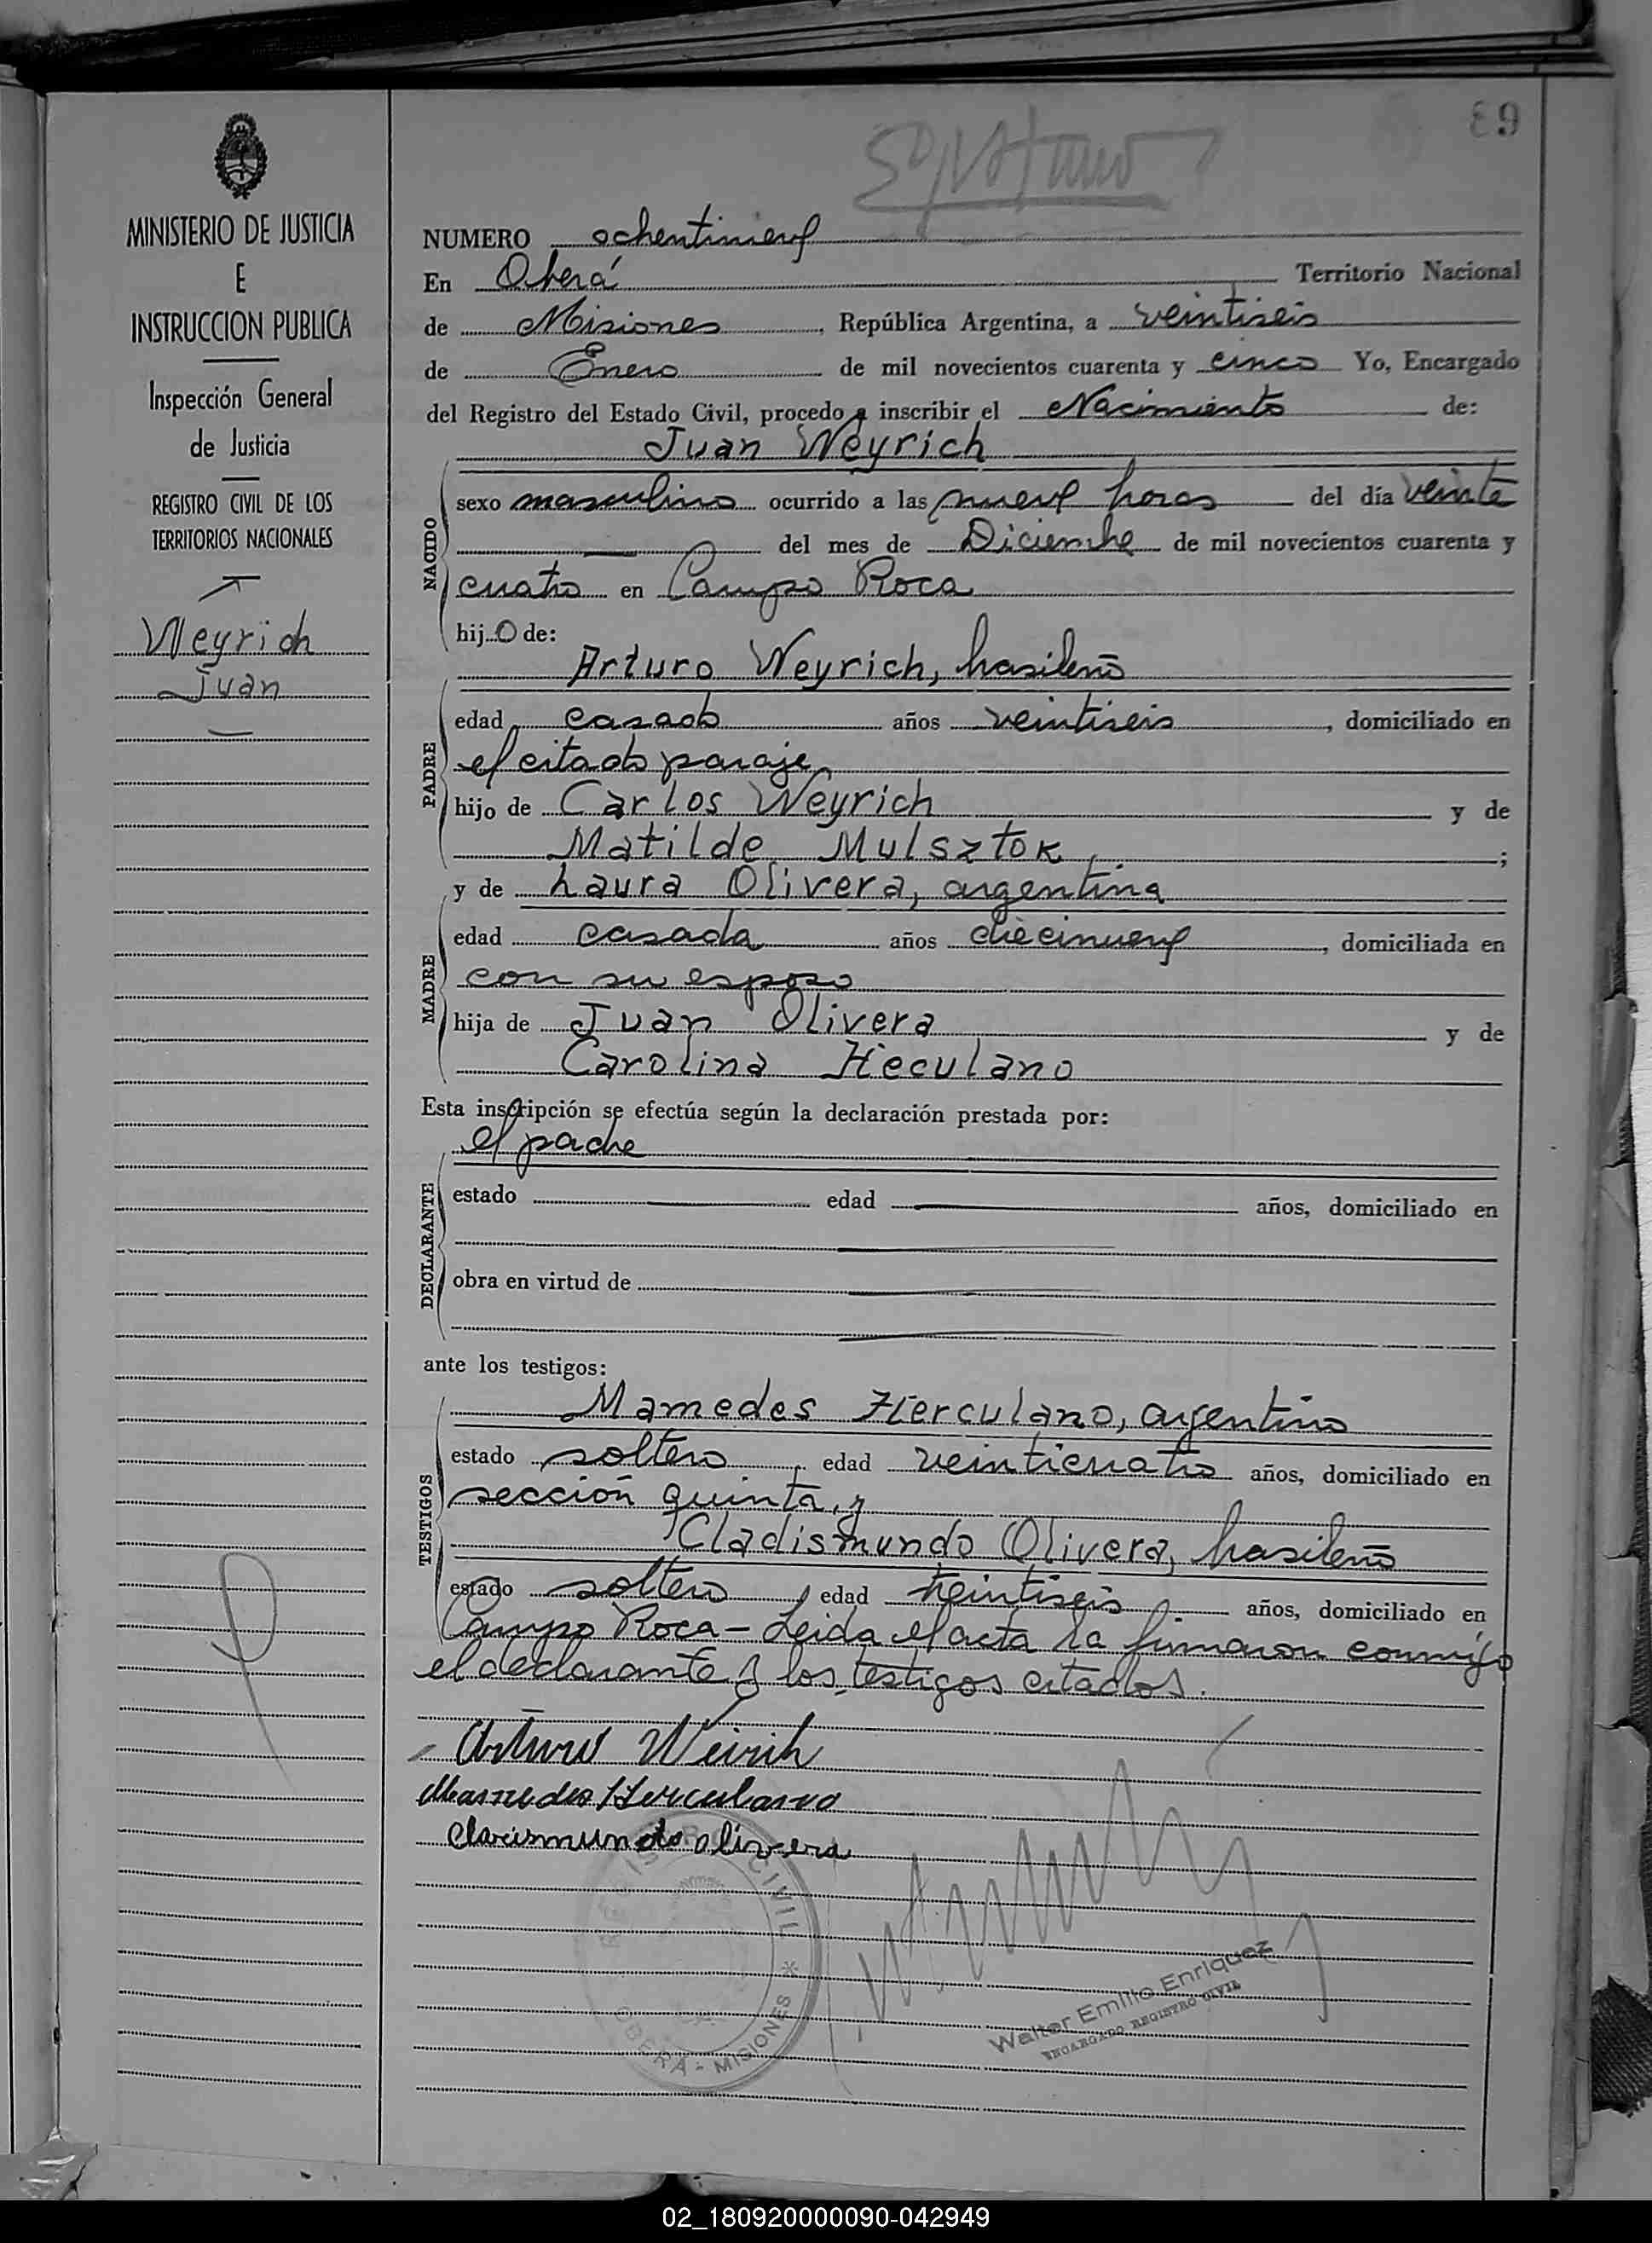 89
MINISTERIO DE JUSTICIA
E
INSTRUCCION PUBLICA
Inspección General
de Justicia
REGISTRO CIVIL DE LOS
TERRITORIOS NACIONALES
Weyrich
Juan
NUMERO ochentinueve
En Oberá Territorio Nacional
de Misiones, República Argentina, a veintiseis
de Enero de mil novecientos cuarenta y cinco Yo, Encargado
del Registro del Estado Civil, procedo a inscribir el Nacimiento de:
Juan Weyrich
NACIDO
sexo masculino ocurrido a las nueve horas del día veinte
del mes de Diciembre de mil novecientos cuarenta y
cuatro en Campo Roca
hijo de:
Arturo Weyrich, brasileño
PADRE
edad casado años veintiseis, domiciliado en
el citado paraje
hijo de Carlos Weyrich y de
Matilde Mulsztok, ;
y de Laura Olivera, argentina
MADRE
edad casada años diecinueve, domiciliada en
con su esposo
hija de Juan Olivera y de
Carolina Heculano
Esta inscripción se efectúa según la declaración prestada por:
el padre
DECLARANTE
estado edad años, domiciliado en
obra en virtud de
ante los testigos:
TESTIGOS
Mamedes Herculano, argentino
estado soltero, edad veinticuatro años, domiciliado en
sección quinta, y
Cladismundo Olivera, brasileño
estado soltero, edad treintiseis años, domiciliado en
Campo Roca - Leida el acta la firmaron conmigo
el declarante y los testigos citados.
Arturo Weirich
Mamedes Herculano
Clarismundo olivera
REGISTRO CIVIL
OBERA - MISIONES
Walter Emilio Enriquez
ENCARGADO REGISTRO CIVIL
02_180920000090-042949